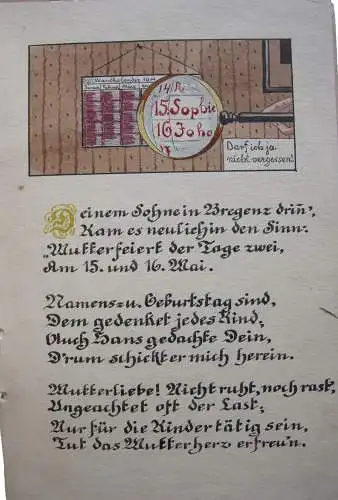 Wandkalender
14.
15. Sophie
16 Joho
17
Darf ich ja
nicht vergessen!
Deinem Sohne in Bregenz drin',
Kam es neulich in den Sinn:
„Mutter feiert der Tage zwei,
Am 15. und 16. Mai.
Namens= u. Geburtstag sind,
Dem gedenket jedes Kind;
Auch Hans gedachte Dein,
D'rum schickt er mich herein.
Mutterliebe! Nicht ruht, noch rast,
Ungeachtet oft der Last;
Nur für die Kinder tätig sein,
Tut das Mutterherz erfreu'n.